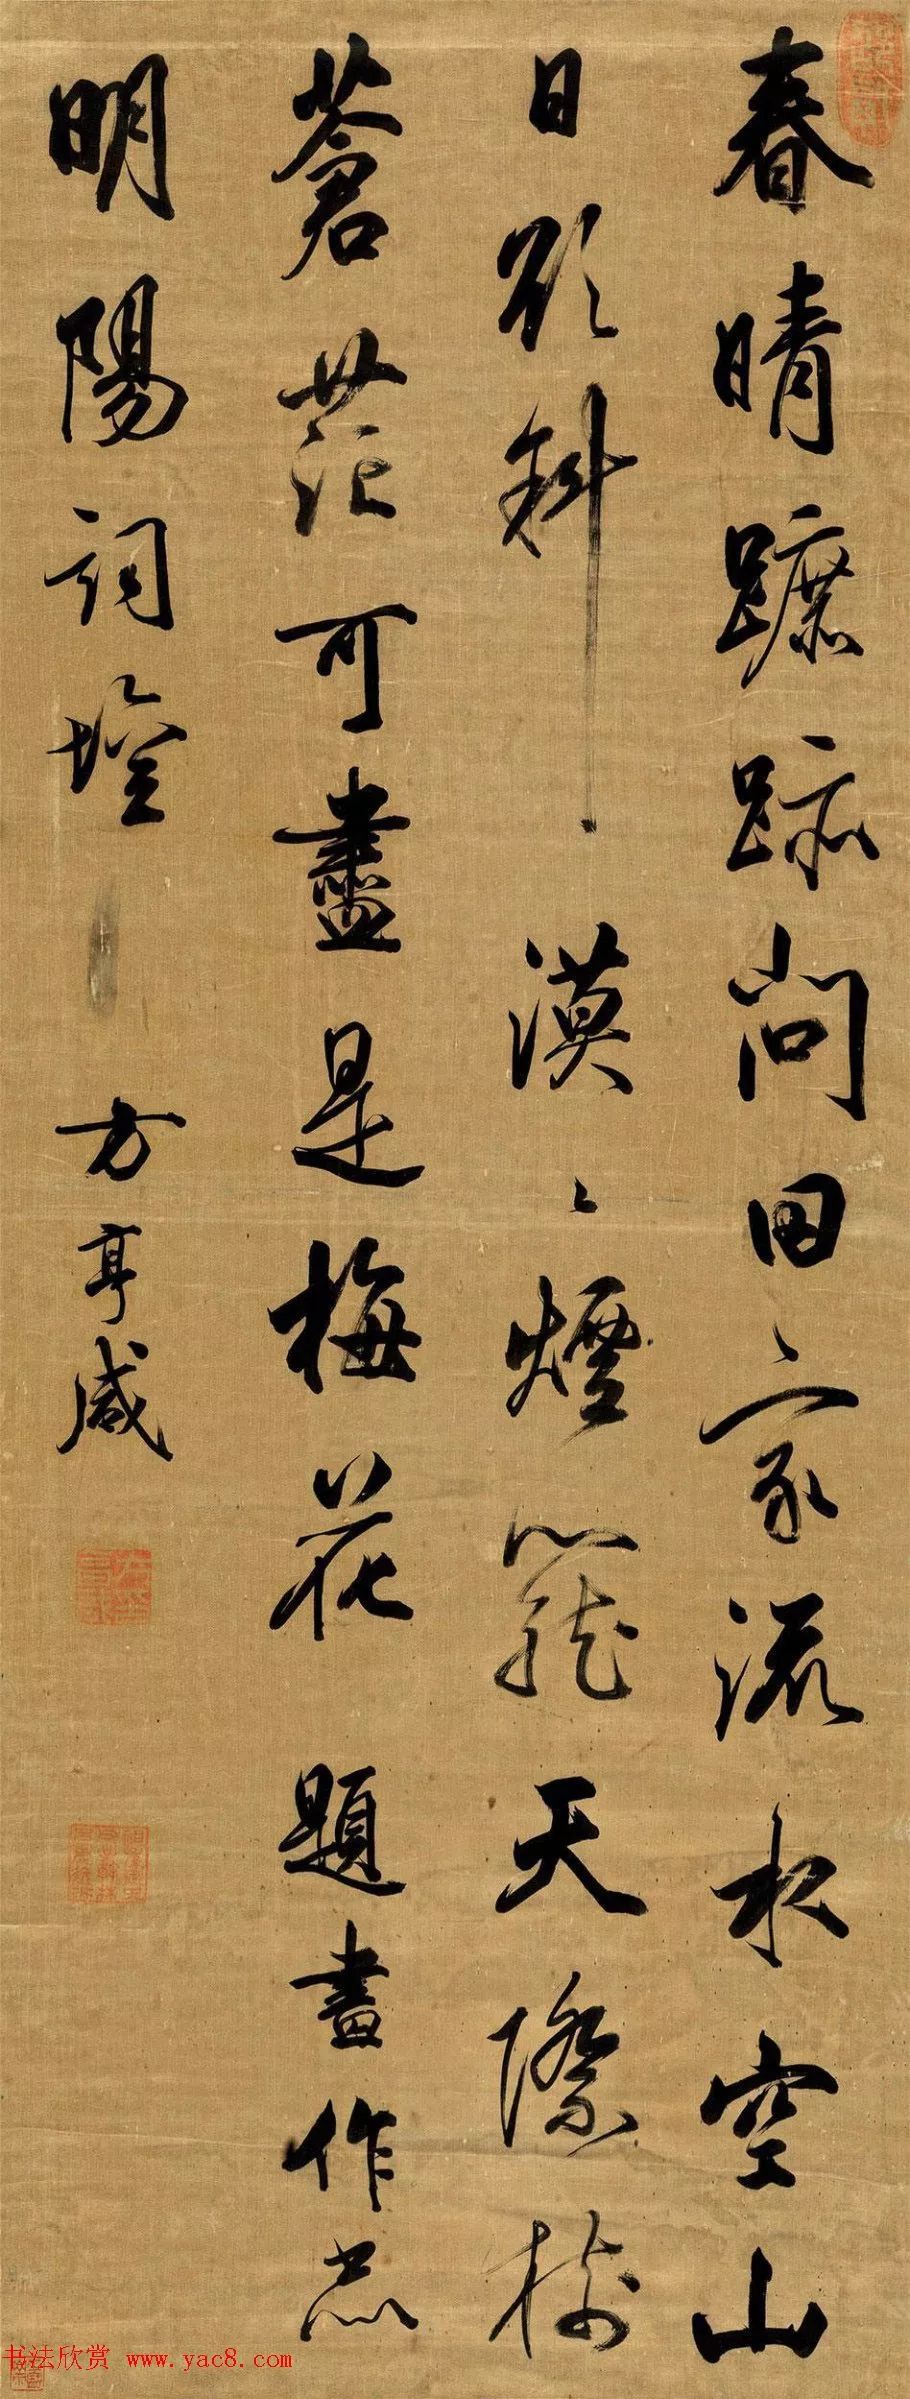 春晴躡跡問田家流水空山
日欲斜漠〻煙籠天際樹
蒼茫可盡是梅花題畫作亦
明陽詞壇
方亨咸
书法欣赏 www.yac8.com